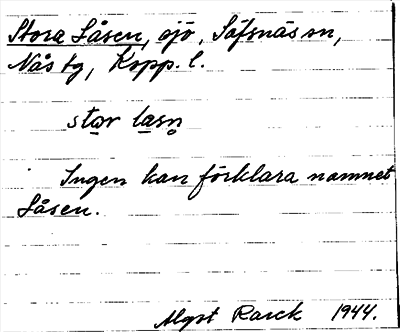 Stora Låsen, sjö, Säfsnäs sn,
Nås tg, Kopp. l.
star lasn
Ingen kan förklara namnet
Låsen.
Algot Rarck 1944.